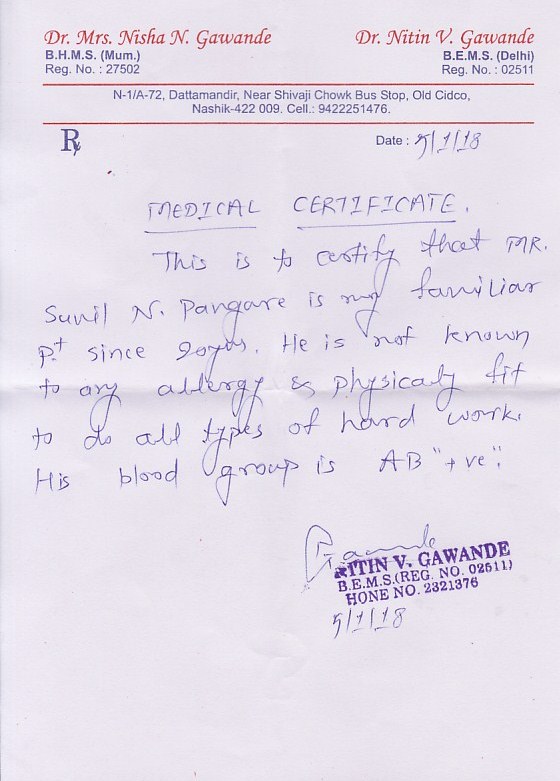 Dr. Mrs. Nisha N. Gawande Dr. Nitin V. Gawande
B.H.M.S. (Mum.) B.E.M.S. (Delhi)
Reg. No. : 27502 Reg. No. : 02511
N-1/A-72, Dattamandir, Near Shivaji Chowk Bus Stop, Old Cidco,
Nashik-422 009. Cell.: 9422251476.
Rx Date : 5/1/18
MEDICAL CERTIFICATE.
This is to certify that MR.
Sunil N. Pangare is my familiar
pt since 20yrs. He is not known
to any allergy & physicaly fit
to do all types of hard work.
His blood group is AB "+ve".
Gawande
NITIN V. GAWANDE
B.E.M.S.(REG. NO. 02511)
HONE NO. 2321376
5/1/18